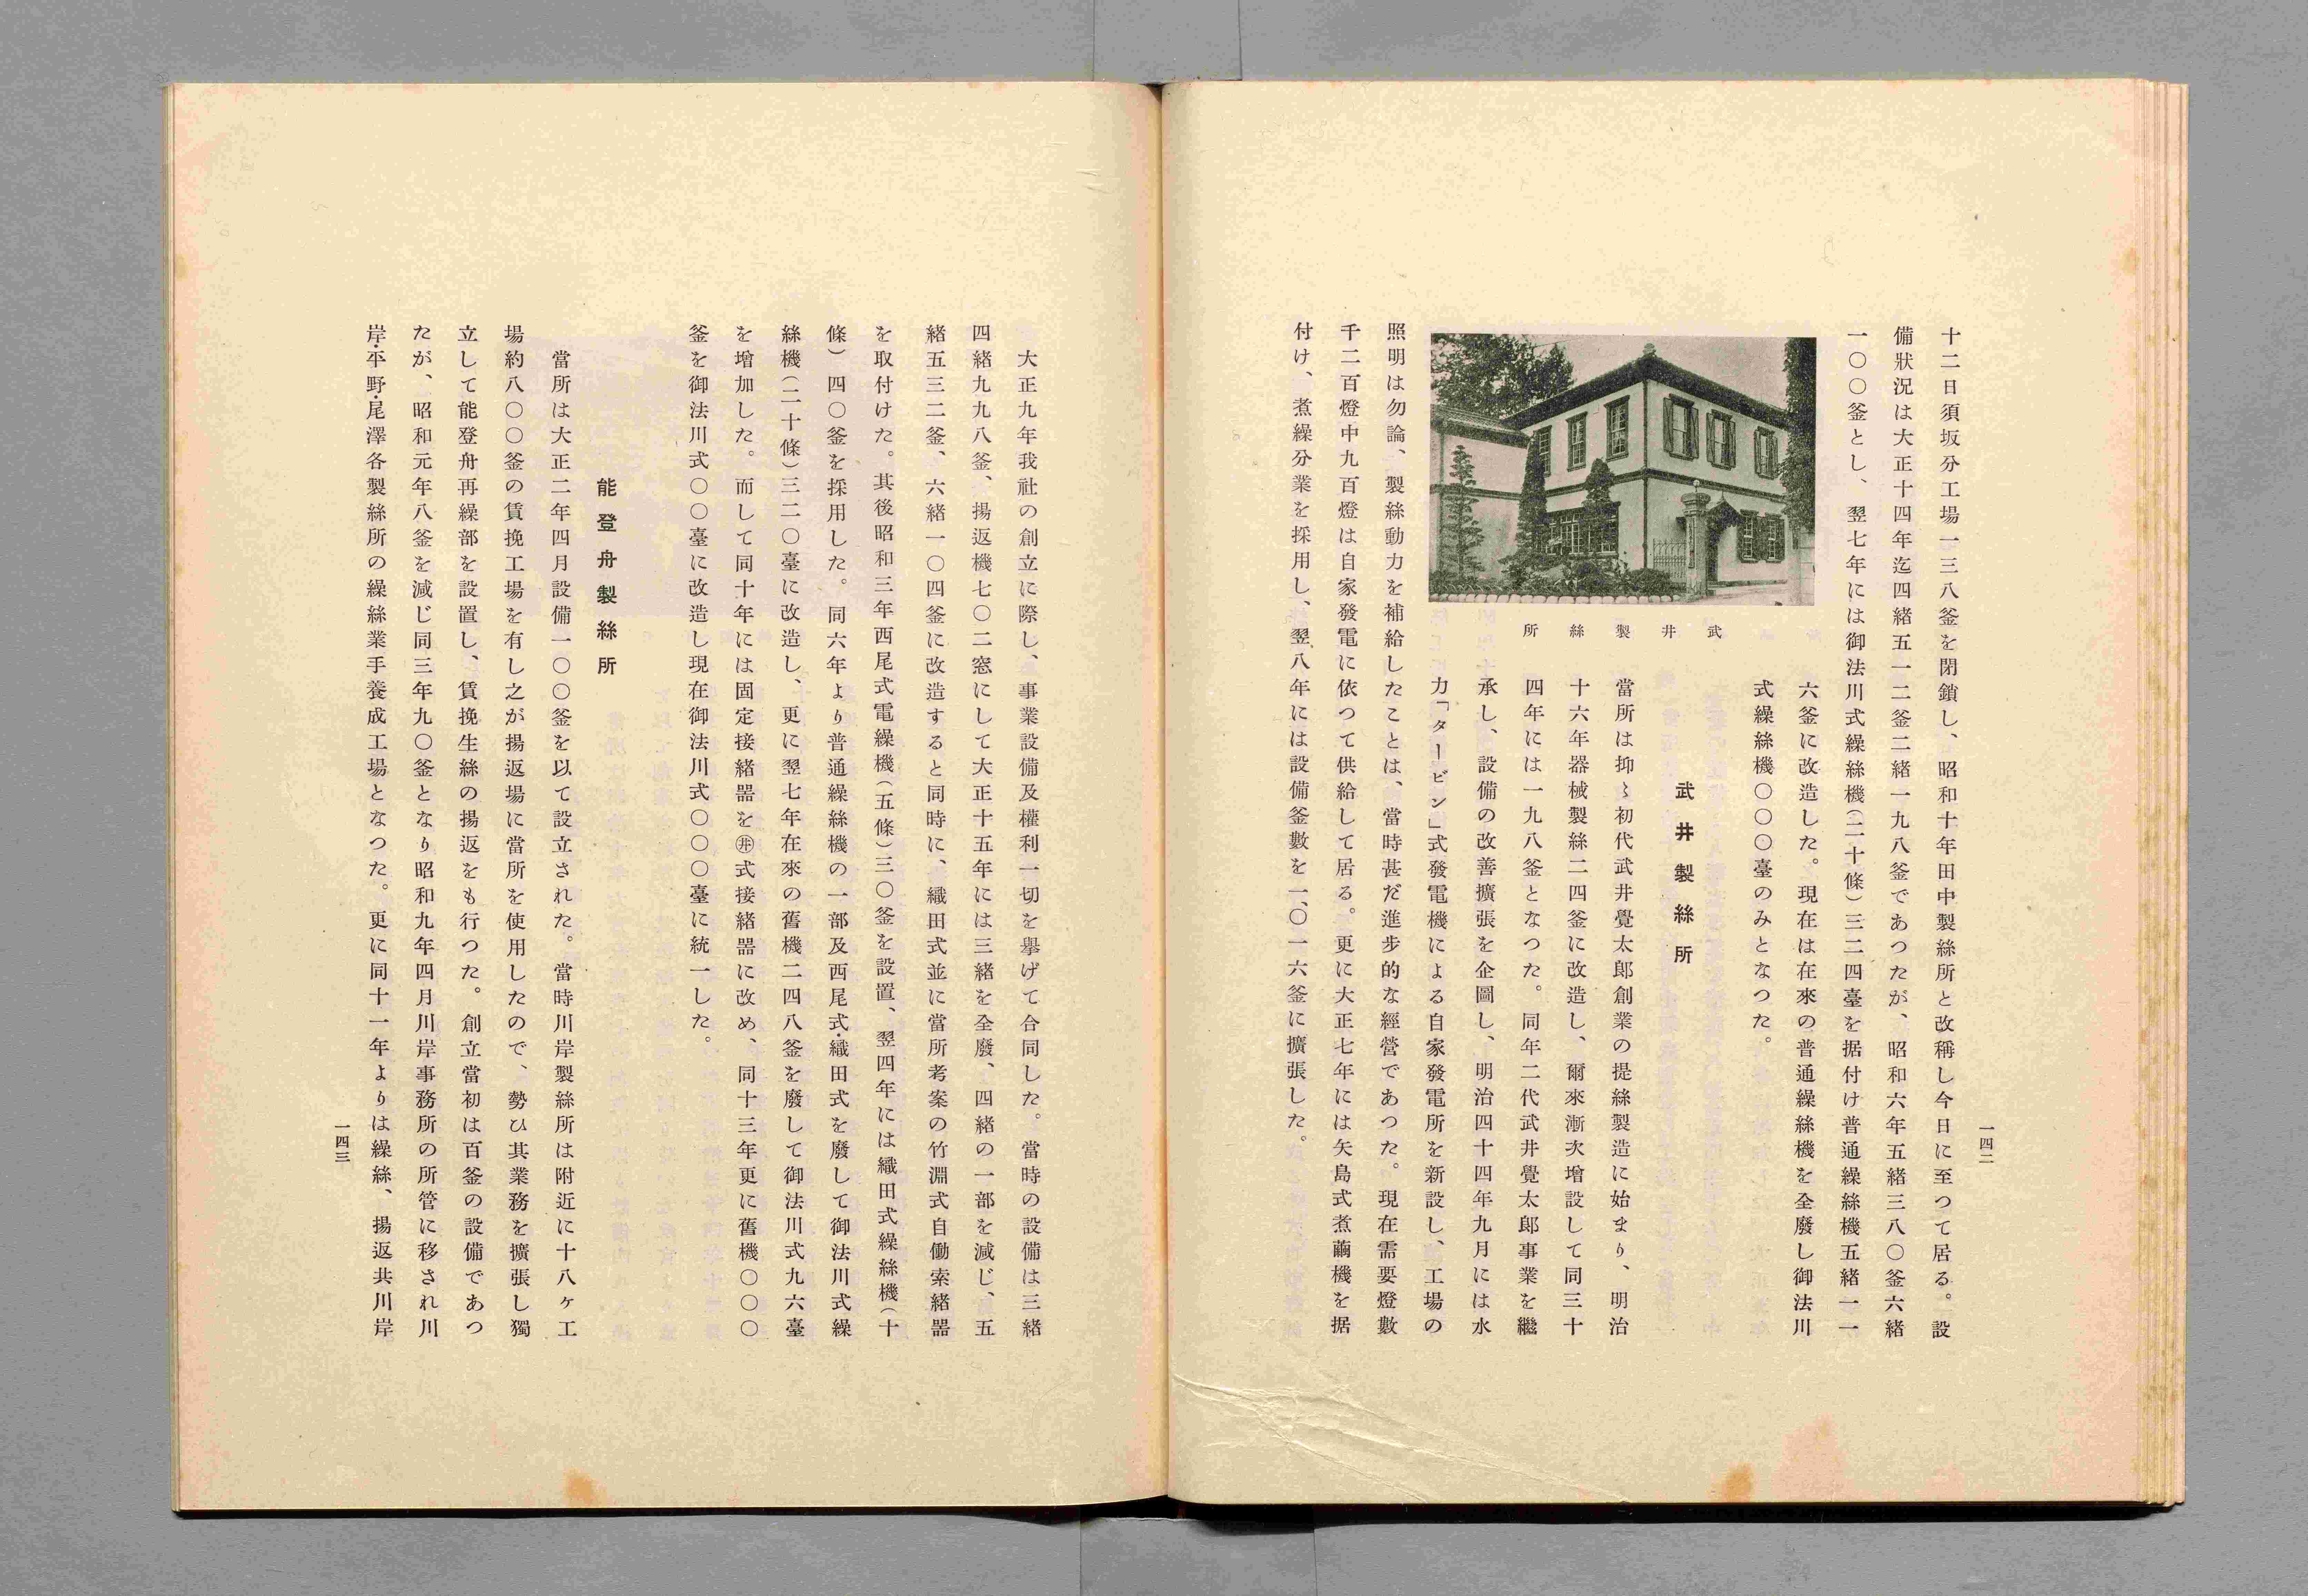 十二日須坂分工場一三八釜を閉鎖し、昭和十年田中製絲所と改稱し今日に至つて居る。設
備狀況は大正十四年迄四緒五一二釜二緒一九八釜であつたが、昭和六年五緒三八〇釜六緒
一〇〇釜とし、翌七年には御法川式繰絲機(二十條)三二四臺を据付け普通繰絲機五緒一一
六釜に改造した。現在は在來の普通繰絲機を全廢し御法川
式繰絲機〇〇〇臺のみとなつた。
武井製絲所
武井製絲所
當所は抑〻初代武井覺太郞創業の提絲製造に始まり、明治
十六年器械製絲二四釜に改造し、爾來漸次增設して同三十
四年には一九八釜となつた。同年二代武井覺太郞事業を繼
承し、設備の改善擴張を企圖し、明治四十四年九月には水
力「タービン」式發電機による自家發電所を新設し、工場の
照明は勿論、製絲動力を補給したことは、當時甚だ進步的な經營であつた。現在需要燈數
千二百燈中九百燈は自家發電に依つて供給して居る。更に大正七年には矢島式煮繭機を据
付け、煮繰分業を採用し、翌八年には設備釜數を一、〇一六釜に擴張した。
一四二
大正九年我社の創立に際し、事業設備及權利一切を擧げて合同した。當時の設備は三緒
四緒九九八釜、揚返機七〇二窓にして大正十五年には三緒を全廢、四緒の一部を減じ、五
緒五三二釜、六緒一〇四釜に改造すると同時に、織田式並に當所考案の竹淵式自働索緒噐
を取付けた。其後昭和三年西尾式電繰機(五條)三〇釜を設置、翌四年には織田式繰絲機(十
條)四〇釜を採用した。同六年より普通繰絲機の一部及西尾式・織田式を廢して御法川式繰
絲機(二十條)三二〇臺に改造し、更に翌七年在來の舊機二四八釜を廢して御法川式九六臺
を增加した。而して同十年には固定接緒噐を㊉式接緒噐に改め、同十三年更に舊機〇〇〇
釜を御法川式〇〇臺に改造し現在御法川式〇〇〇臺に統一した。
能登舟製絲所
當所は大正二年四月設備一〇〇釜を以て設立された。當時川岸製絲所は附近に十八ヶ工
場約八〇〇釜の賃挽工場を有し之が揚返場に當所を使用したので、勢ひ其業務を擴張し獨
立して能登舟再繰部を設置し、賃挽生絲の揚返をも行つた。創立當初は百釜の設備であつ
たが、昭和元年八釜を減じ同三年九〇釜となり昭和九年四月川岸事務所の所管に移され川
岸・平野・尾澤各製絲所の繰絲業手養成工場となつた。更に同十一年よりは繰絲、揚返共川岸
一四三